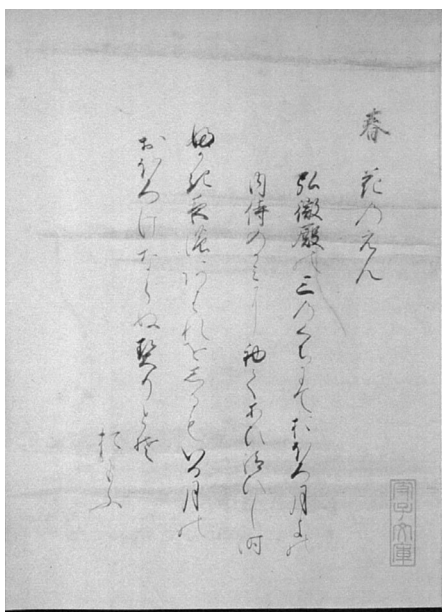 春 花のえん
弘徽殿の三のくちにておほろ月よの
内侍のかみに初てあひ給ひし時
ふかき夜のあはれをしるもいる月の
おほろけならぬ契りとそ
おもふ